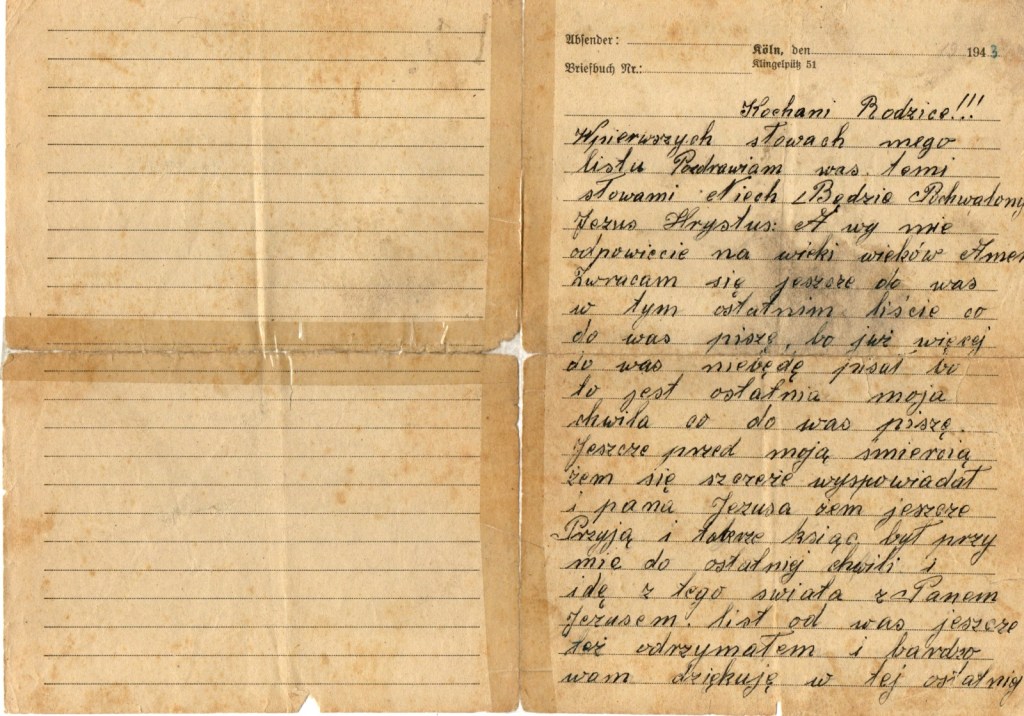 Absender:
Köln, den 19 1943
Briefbuch Nr.:
Klingelpütz 51
Kochani Rodzice!!!
Wpierwszych słowach mego
listu Pozdrawiam was temi
słowami Niech Będzie Pochwalony
Jezus Hrystus: A wy mie
odpowiecie na wieki wieków Amen
Zwracam się jeszcze do was
w tym ostatnim liście co
do was piszę, bo już więcej
do was niebędę pisał bo
to jest ostatnia moja
chwila co do was piszę.
Jeszcze przed moją smiercią
żem się szczeże wyspowiadał
i pana Jezusa żem jeszcze
Przyją i takrze ksiąc był przy
mie do ostatniej chwili i
idę z tego swiata z Panem
Jezusem. list od was jeszcze
też odrzymałem i bardzo
wam dziękuję w tej ostatniej